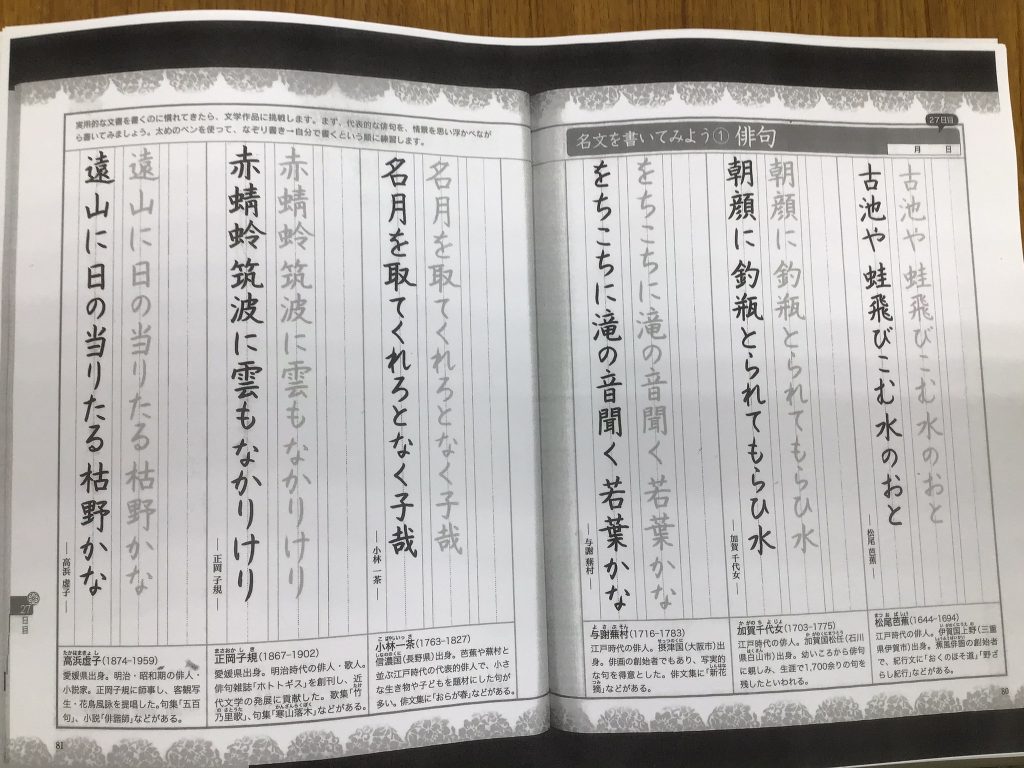 27日目
名文を書いてみよう① 俳句
月 日
古池や 蛙飛びこむ 水のおと
古池や 蛙飛びこむ 水のおと
―松尾 芭蕉―
朝顔に 釣瓶とられて もらひ水
朝顔に 釣瓶とられて もらひ水
―加賀 千代女―
をちこちに 滝の音聞く 若葉かな
をちこちに 滝の音聞く 若葉かな
―与謝 蕪村―
松尾芭蕉(1644-1694)
江戸時代の俳人。伊賀国上野(三重
県伊賀市)出身。蕉風俳諧の創始者
で、紀行文に「おくのほそ道」「野ざ
らし紀行」などがある。
加賀千代女(1703-1775)
江戸時代の俳人。加賀国松任(石川
県白山市)出身。幼いころから俳句
に親しみ、生涯で1,700余りの句を
残したといわれる。
与謝蕪村(1716-1783)
江戸時代の俳人。摂津国(大阪市)出
身。俳画の創始者でもあり、写実的
な句を得意とした。俳文集に「新花
摘」などがある。
80
実用的な文書を書くのに慣れてきたら、文学作品に挑戦します。まず、代表的な俳句を、情景を思い浮かべなが
ら書いてみましょう。太めのペンを使って、なぞり書き→自分で書くという順に練習します。
名月を 取てくれろと なく子哉
名月を 取てくれろと なく子哉
―小林 一茶―
赤蜻蛉 筑波に雲も なかりけり
赤蜻蛉 筑波に雲も なかりけり
―正岡 子規―
遠山に 日の当りたる 枯野かな
遠山に 日の当りたる 枯野かな
―高浜 虚子―
小林一茶(1763-1827)
信濃国(長野県)出身。芭蕉や蕪村と
並ぶ江戸時代の代表的俳人で、小さ
な生き物や子どもを題材にした句が
多い。俳文集に「おらが春」などがある。
正岡子規(1867-1902)
愛媛県出身。明治時代の俳人・歌人。
俳句雑誌「ホトトギス」を創刊し、近
代文学の発展に貢献した。歌集「竹
乃里歌」、句集「寒山落木」などがある。
高浜虚子(1874-1959)
愛媛県出身。明治・昭和期の俳人・
小説家。正岡子規に師事し、客観写
生・花鳥風詠を提唱した。句集「五百
句」、小説「俳諧師」などがある。
27
日目
81